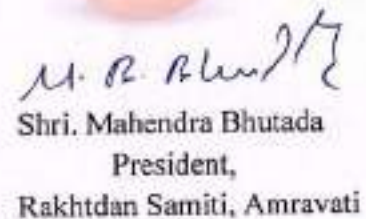 Shri. Mahendra Bhutada
President,
Rakhtdan Samiti, Amravati